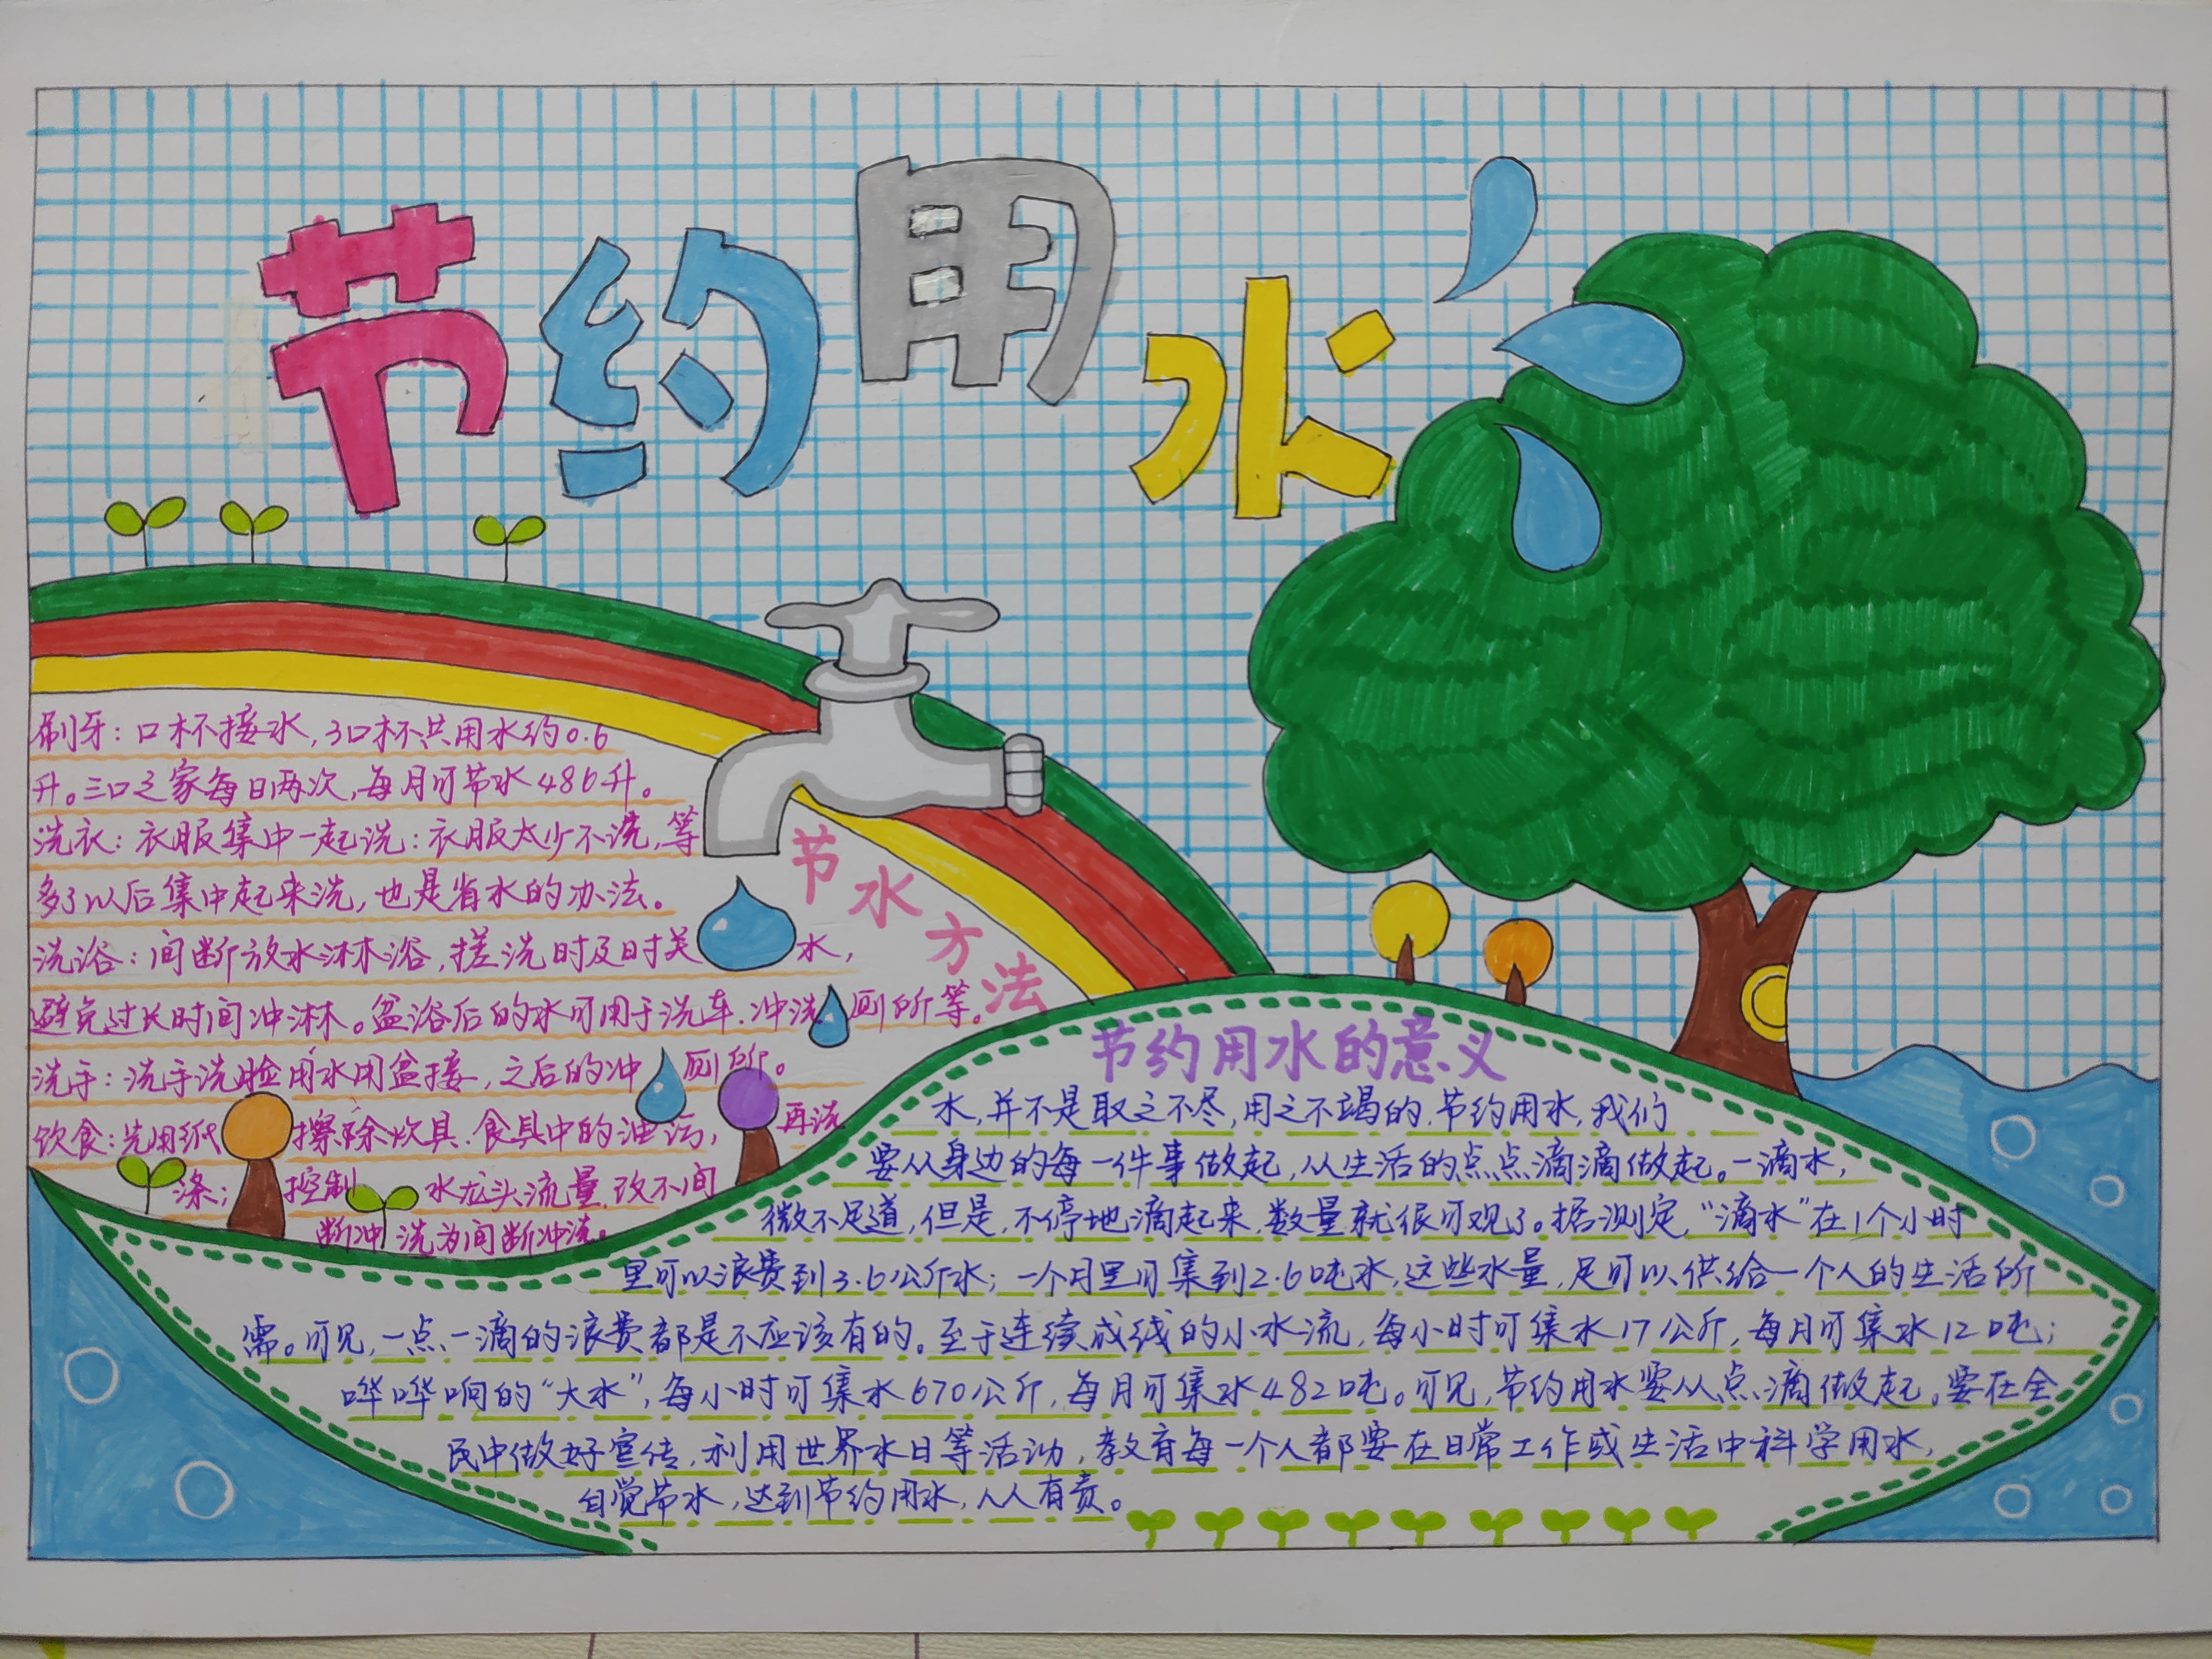 节约用水
刷牙：口杯接水，3口杯共用水约0.6
升。三口之家每日两次，每月可节水486升。
洗衣：衣服集中一起洗：衣服太少不洗，等
多了以后集中起来洗，也是省水的办法。
洗浴：间断放水淋浴，搓洗时及时关水，
避免过长时间冲淋。盆浴后的水可用于洗车、冲洗厕所等。
洗手：洗手洗脸用水用盆接，之后的冲厕所。
饮食：先用纸擦除炊具、食具中的油污，再洗
涤；控制水龙头流量，改不间
断冲洗为间断冲洗。
节水方法
节约用水的意义
水，并不是取之不尽，用之不竭的，节约用水，我们
要从身边的每一件事做起，从生活的点点滴滴做起。一滴水，
微不足道，但是，不停地滴起来，数量就很可观了。据测定，“滴水”在1个小时
里可以浪费到3.6公斤水；一个月里可集到2.6吨水，这些水量，足可以供给一个人的生活所
需。可见，一点一滴的浪费都是不应该有的。至于连续成线的小水流，每小时可集水17公斤，每月可集水12吨；
哗哗响的“大水”，每小时可集水670公斤，每月可集水482吨。可见，节约用水要从点滴做起。要在全
民中做好宣传，利用世界水日等活动，教育每一个人都要在日常工作或生活中科学用水，
自觉节水，达到节约用水，人人有责。